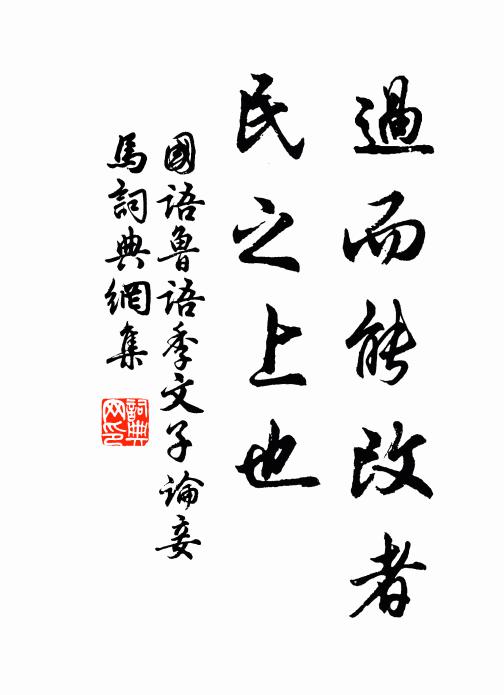 過而能改者
民之上也
國语魯语季文子論妾
馬詞典網集
詞典网印